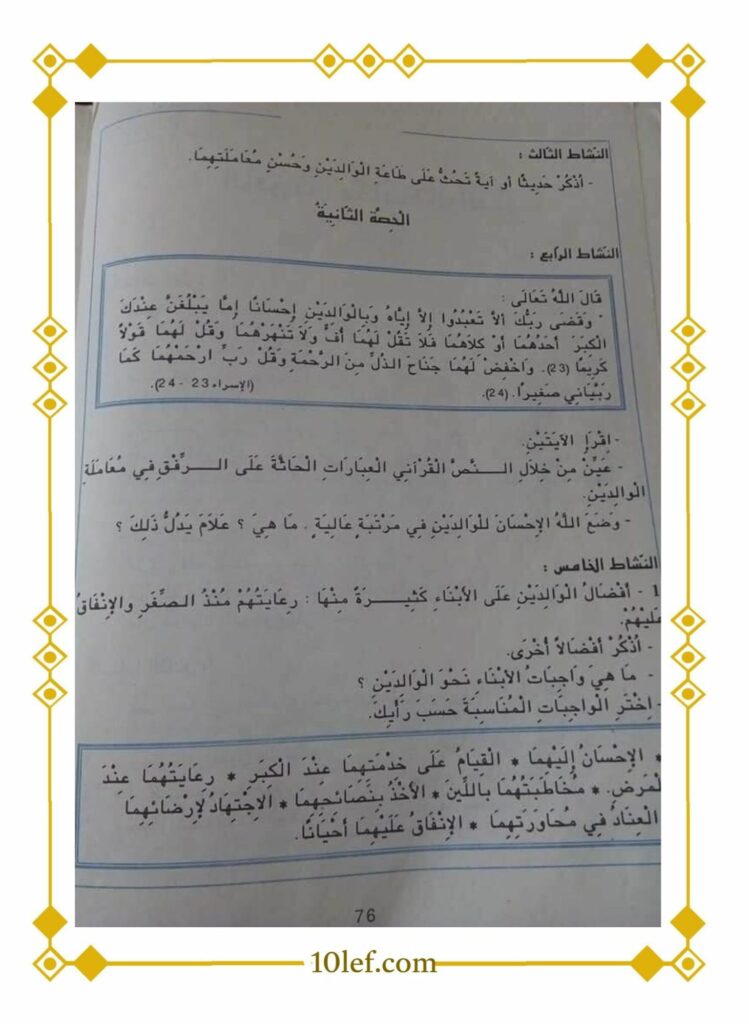 النشاط الثالث :
- أُذْكُرْ حَدِيثًا أو آيَةً تَحُثُّ عَلَى طَاعَةِ الْوَالِدَيْنِ وَحُسْنِ مُعَامَلَتِهِمَا.
الْحِصَّةُ الثَّانِيَةُ
النشاط الرابع :
قَالَ اللَّهُ تَعَالَى :
" وَقَضَى رَبُّكَ ألاَّ تَعْبُدُوا إِلاَّ إِيَّاهُ وَبِالْوَالِدَيْنِ إِحْسَانًا إِمَّا يَبْلُغَنَّ عِنْدَكَ
الْكِبَرَ أَحَدُهُمَا أَوْ كِلاَهُمَا فَلاَ تَقُلْ لَهُمَا أُفٍّ وَلاَ تَنْهَرْهُمَا وَقُلْ لَهُمَا قَوْلاً
كَرِيمًا (23). وَاخْفِضْ لَهُمَا جَنَاحَ الذُّلِّ مِنَ الرَّحْمَةِ وَقُلْ رَبِّ ارْحَمْهُمَا كَمَا
رَبَّيَانِي صَغِيرًا. (24). (الإسراء 23 - 24).
- اِقْرَإِ الآيَتَيْنِ.
- عَيِّنْ مِنْ خِلاَلِ النَّصِّ الْقُرْآنِي الْعِبَارَاتِ الْحَاثَّةَ عَلَى الرِّفْقِ فِي مُعَامَلَةِ
الْوَالِدَيْنِ.
- وَضَعَ اللَّهُ الإِحْسَانَ لِلْوَالِدَيْنِ فِي مَرْتَبَةٍ عَالِيَةٍ. مَا هِيَ ؟ عَلاَمَ يَدُلُّ ذَلِكَ ؟
النشاط الخامس :
1 - أَفْضَالُ الْوَالِدَيْنِ عَلَى الأَبْنَاءِ كَثِيرَةٌ مِنْهَا : رِعَايَتُهُمْ مُنْذُ الصِّغَرِ والإِنْفَاقُ
عَلَيْهِمْ.
- اُذْكُرْ أَفْضَالاً أُخْرَى.
- مَا هِيَ وَاجِبَاتُ الأَبْنَاءِ نَحْوَ الْوَالِدَيْنِ ؟
- اِخْتَرِ الْوَاجِبَاتِ الْمُنَاسِبَةَ حَسَبَ رَأْيِكَ.
* الإِحْسَانُ إِلَيْهِمَا * الْقِيَامُ عَلَى خِدْمَتِهِمَا عِنْدَ الْكِبَرِ * رِعَايَتُهُمَا عِنْدَ
الْمَرَضِ. * مُخَاطَبَتُهُمَا بِاللِّينِ * الأَخْذُ بِنَصَائِحِهِمَا * الاِجْتِهَادُ لإِرْضَائِهِمَا
الْعِنَادُ فِي مُحَاوَرَتِهِمَا * الإِنْفَاقُ عَلَيْهِمَا أَحْيَانًا.
76
10lef.com